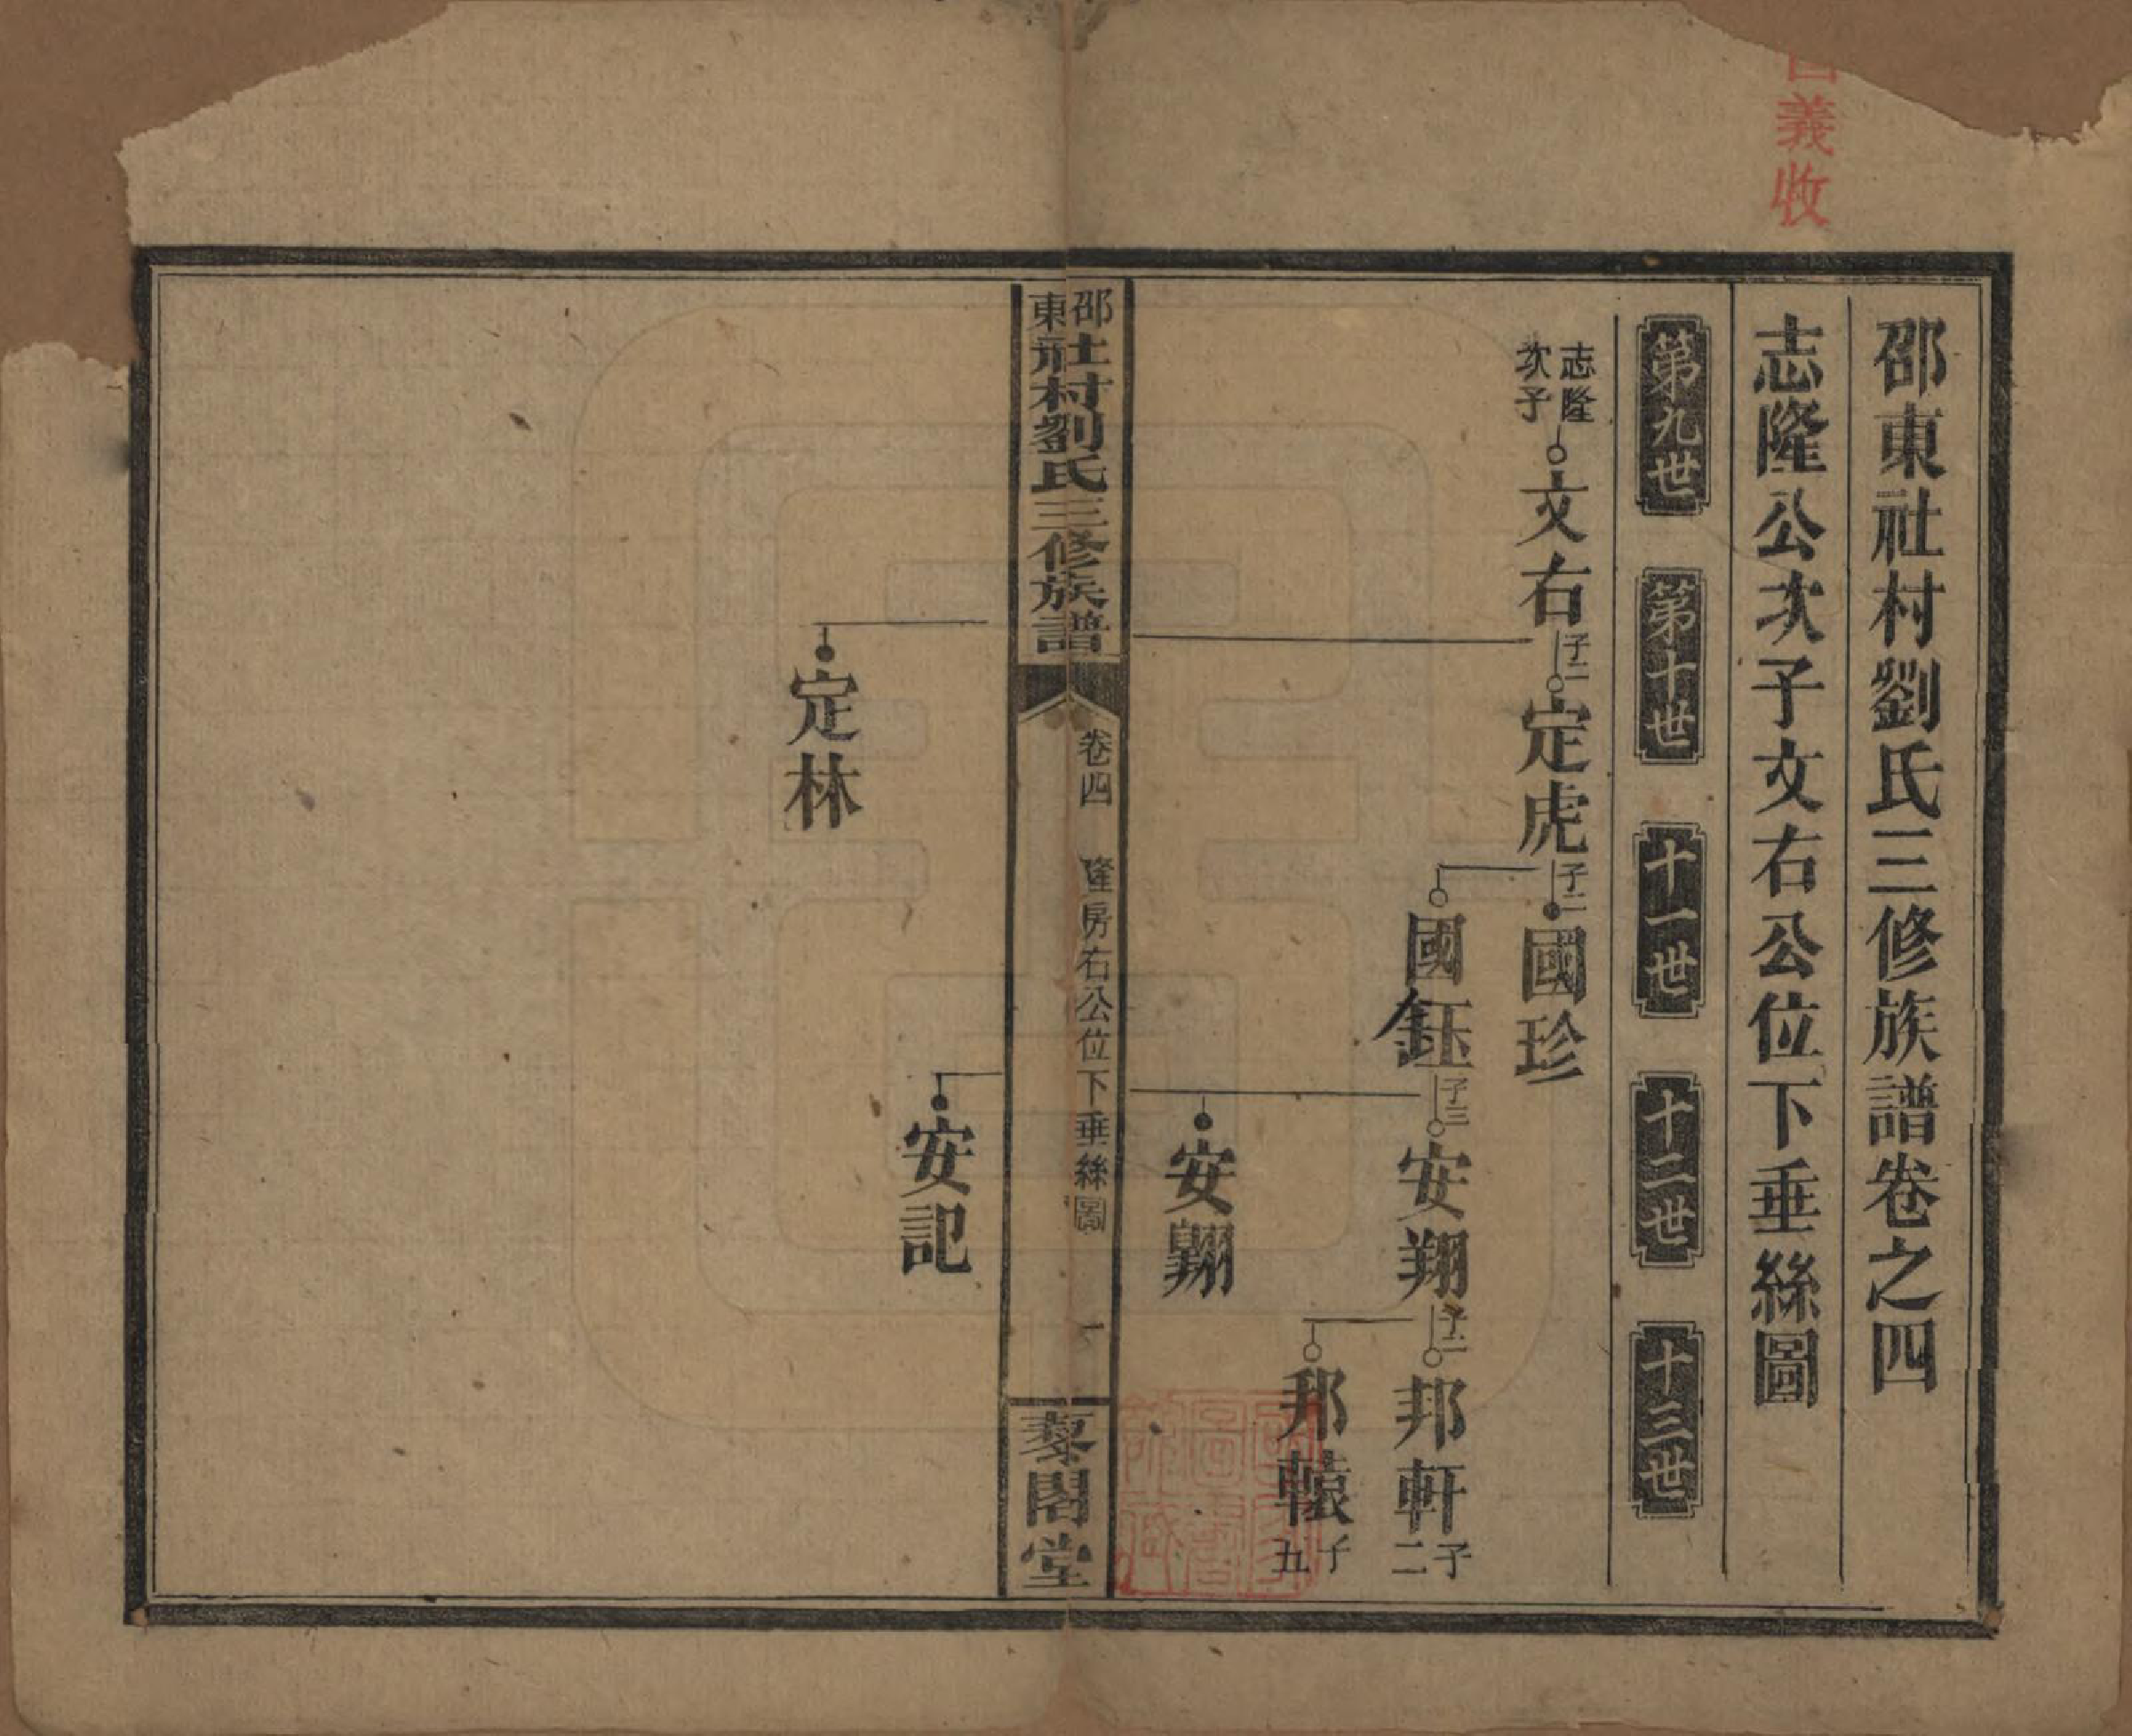 義收
邵東社村劉氏三修族譜卷之四
志隆公次子文右公位下垂絲圖
第九世
第十世
十一世
十二世
十三世
志隆次子
文右
子二
定虎
子二
國珍
國鈺
子三
安翔
子二
邦軒
子二
邦轅
子五
安翺
邵東社村劉氏三修族譜
卷四
隆房右公位下垂絲圖
一
藜閣堂
安記
定林